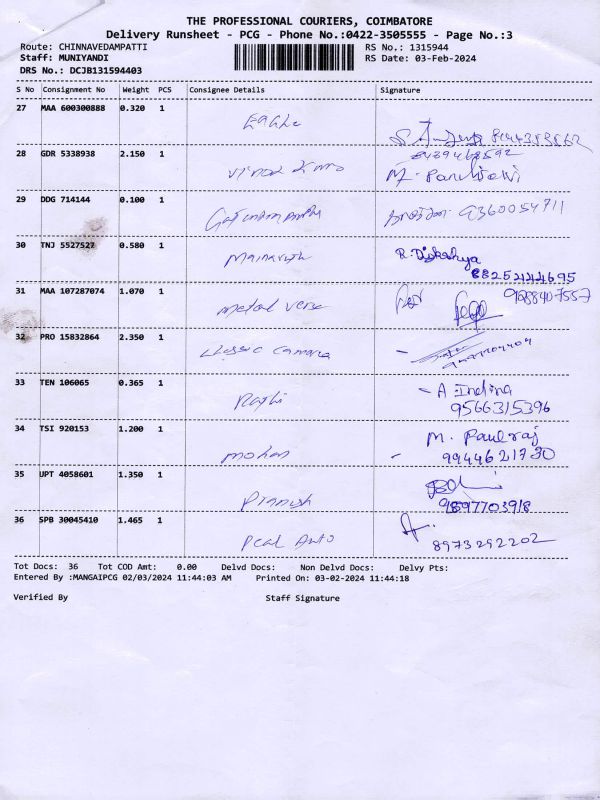 THE PROFESSIONAL COURIERS, COIMBATORE
Delivery Runsheet - PCG - Phone No.:0422-3505555 - Page No.:3
Route: CHINNAVEDAMPATTI RS No.: 1315944
Staff: MUNIYANDI RS Date: 03-Feb-2024
DRS No.: DCJB131594403
S No Consignment No Weight PCS Consignee Details Signature
27 MAA 600300888 0.320 1 Eagle
28 GDR 5338938 2.150 1
29 DDG 714144 0.100 1 9360054711
30 TNJ 5527527 0.580 1 R. Dikshya
8825244695
31 MAA 107287074 1.070 1 metal verse 9688407557
32 PRO 15832864 2.350 1 Classic Camera
33 TEN 106065 0.365 1 Rathi A Indina
9566315396
34 TSI 920153 1.200 1 mohan M. Paulraj
9944621730
35 UPT 4058601 1.350 1 Pranish
9897703918
36 SPB 30045410 1.465 1 Pcal Auto
8973292202
Tot Docs: 36 Tot COD Amt: 0.00 Delvd Docs: Non Delvd Docs: Delvy Pts:
Entered By :MANGAIPCG 02/03/2024 11:44:03 AM Printed On: 03-02-2024 11:44:18
Verified By Staff Signature